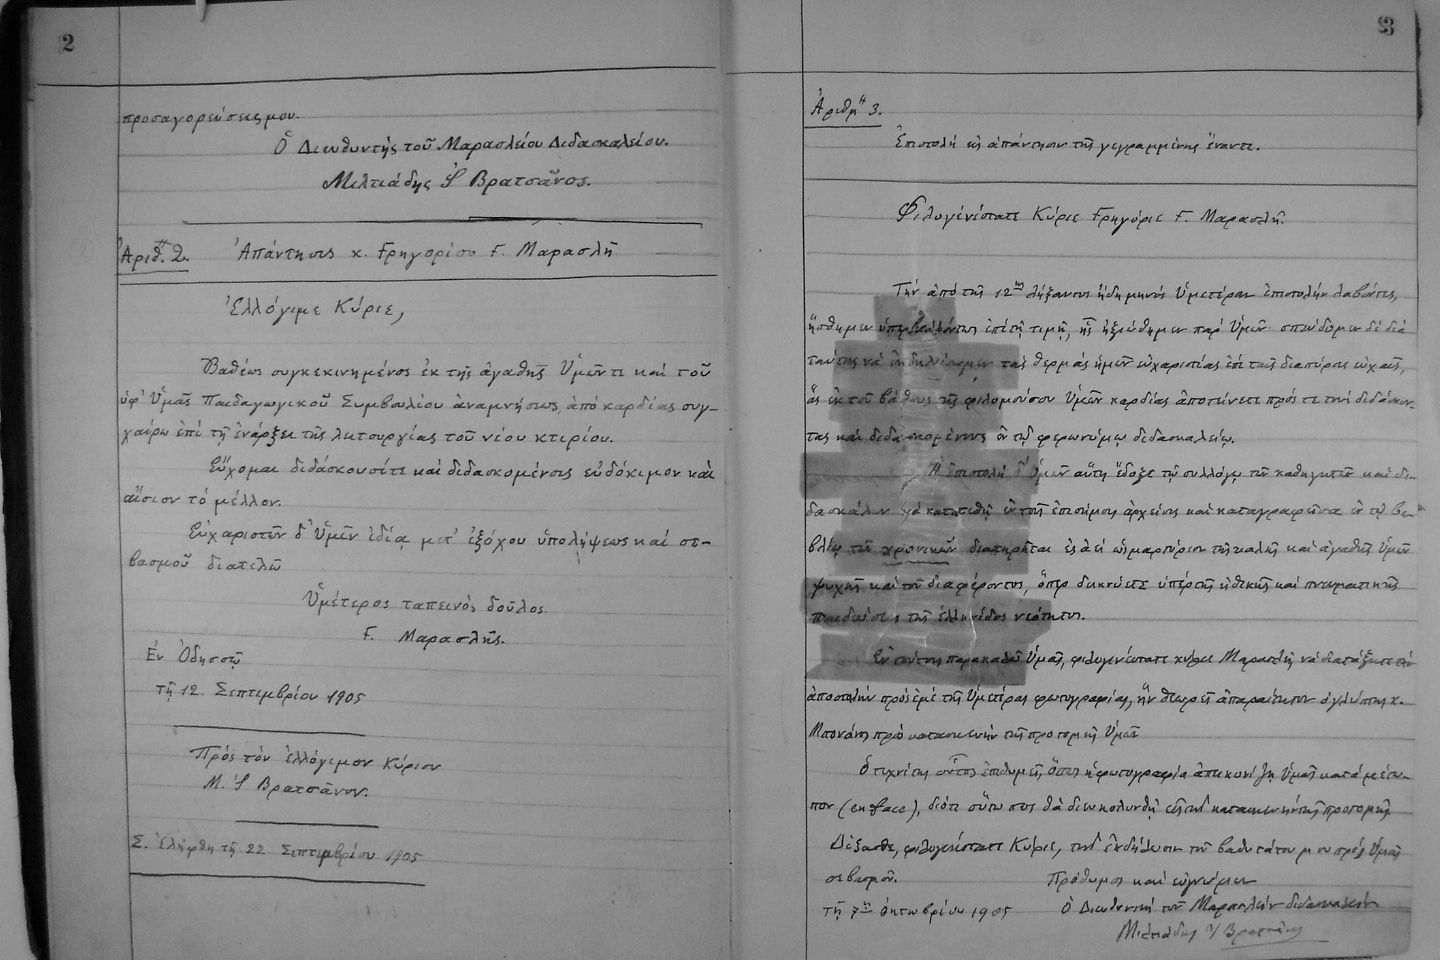 2
προσαγορεύσεις μου.
Ὁ Διευθυντὴς τοῦ Μαρασλείου Διδασκαλείου.
Μιλτιάδης Βρατσᾶνος.
Ἀριθ. 2. Ἀπάντησις κ. Γρηγορίου Γ. Μαρασλῆ
Ἐλλόγιμε Κύριε,
Βαθέως συγκεκινημένος ἐκ τῆς ἀγαθῆς Ὑμῶν τε καὶ τοῦ
ὑφ' Ὑμᾶς Παιδαγωγικοῦ Συμβουλίου ἀναμνήσεως, ἀπὸ καρδίας συγ-
χαίρω ἐπὶ τῇ ἐνάρξει τῆς λειτουργίας τοῦ νέου κτιρίου.
Εὔχομαι διδάσκουσί τε καὶ διδασκομένοις εὐδόκιμον καὶ
αἴσιον τὸ μέλλον.
Εὐχαριστῶν δ' Ὑμῖν ἰδίᾳ μετ' ἐξόχου ὑπολήψεως καὶ σε-
βασμοῦ διατελῶ
Ὑμέτερος ταπεινὸς δοῦλος.
Γ. Μαρασλῆς.
Ἐν Ὀδησσῷ
τῇ 12. Σεπτεμβρίου 1905
Πρὸς τὸν ἐλλόγιμον Κύριον
Μ. Βρατσᾶνον.
Σ. Ἐλήφθη τῇ 22 Σεπτεμβρίου 1905
3
Ἀριθμ. 3.
Ἐπιστολὴ εἰς ἀπάντησιν τῆς γεγραμμένης ἔναντι.
Φιλογενέστατε Κύριε Γρηγόριε Γ. Μαρασλῆ.
Τὴν ἀπὸ τῆς 12ης λήξαντος ἤδη μηνὸς Ὑμετέραν ἐπιστολὴν λαβόντες,
ἥσθημεν ὑπερβαλλόντως ἐπὶ τῇ τιμῇ, ἧς ἠξιώθημεν παρ' Ὑμῶν· σπεύδομεν δὲ διὰ
ταύτης νὰ ἐκδηλώσωμεν τὰς θερμὰς ἡμῶν εὐχαριστίας ἐπὶ ταῖς διαπύροις εὐχαῖς,
ἃς ἐκ τοῦ βάθους τῆς φιλομούσου Ὑμῶν καρδίας ἀποτείνετε πρός τε τοὺς διδάσκον-
τας καὶ διδασκομένους ἐν τῷ φερωνύμῳ διδασκαλείῳ.
Ἡ ἐπιστολὴ δ' Ὑμῶν αὕτη ἔδοξε τῷ συλλόγῳ τῶν καθηγητῶν καὶ δι-
δασκάλων νὰ κατατεθῇ ἐν τοῖς ἐπισήμοις ἀρχείοις καὶ καταγραφεῖσα ἐν τῷ βι-
βλίῳ τῶν χρονικῶν διατηρῆται ἐς ἀεὶ ὡς μαρτύριον τῆς καλῆς καὶ ἀγαθῆς Ὑμῶν
ψυχῆς καὶ τοῦ διαφέροντος, ὅπερ δεικνύετε ὑπὲρ τῆς ἠθικῆς καὶ πνευματικῆς
παιδεύσεως τῆς ἑλληνίδος νεότητος.
Ἐν τούτοις παρακαλῶ Ὑμᾶς, φιλογενέστατε κύριε Μαρασλῆ, νὰ διατάξητε τὴν
ἀποστολὴν πρὸς ἐμὲ τῆς Ὑμετέρας φωτογραφίας, ἣν θεωρεῖ ἀπαραίτητον ὁ γλύπτης κ.
πρὸς κατασκευὴν τῆς προτομῆς Ὑμῶν.
Ὁ τεχνίτης οὗτος ἐπιθυμεῖ, ὅπως ἡ φωτογραφία ἀπεικονίζῃ Ὑμᾶς κατὰ μέτω-
πον (en face), διότι οὕτω πως θὰ διευκολυνθῇ εἰς τὴν κατασκευὴν τῆς προτομῆς.
Δέξασθε, φιλογενέστατε Κύριε, τὴν ἐκδήλωσιν τοῦ βαθυτάτου μου πρὸς Ὑμᾶς
σεβασμοῦ. Πρόθυμος καὶ εὐγνώμων
τῇ 7ῃ Ὀκτωβρίου 1905 Ὁ Διευθυντὴς τοῦ Μαρασλείου διδασκαλείου
Μιλτιάδης Βρατσᾶνος